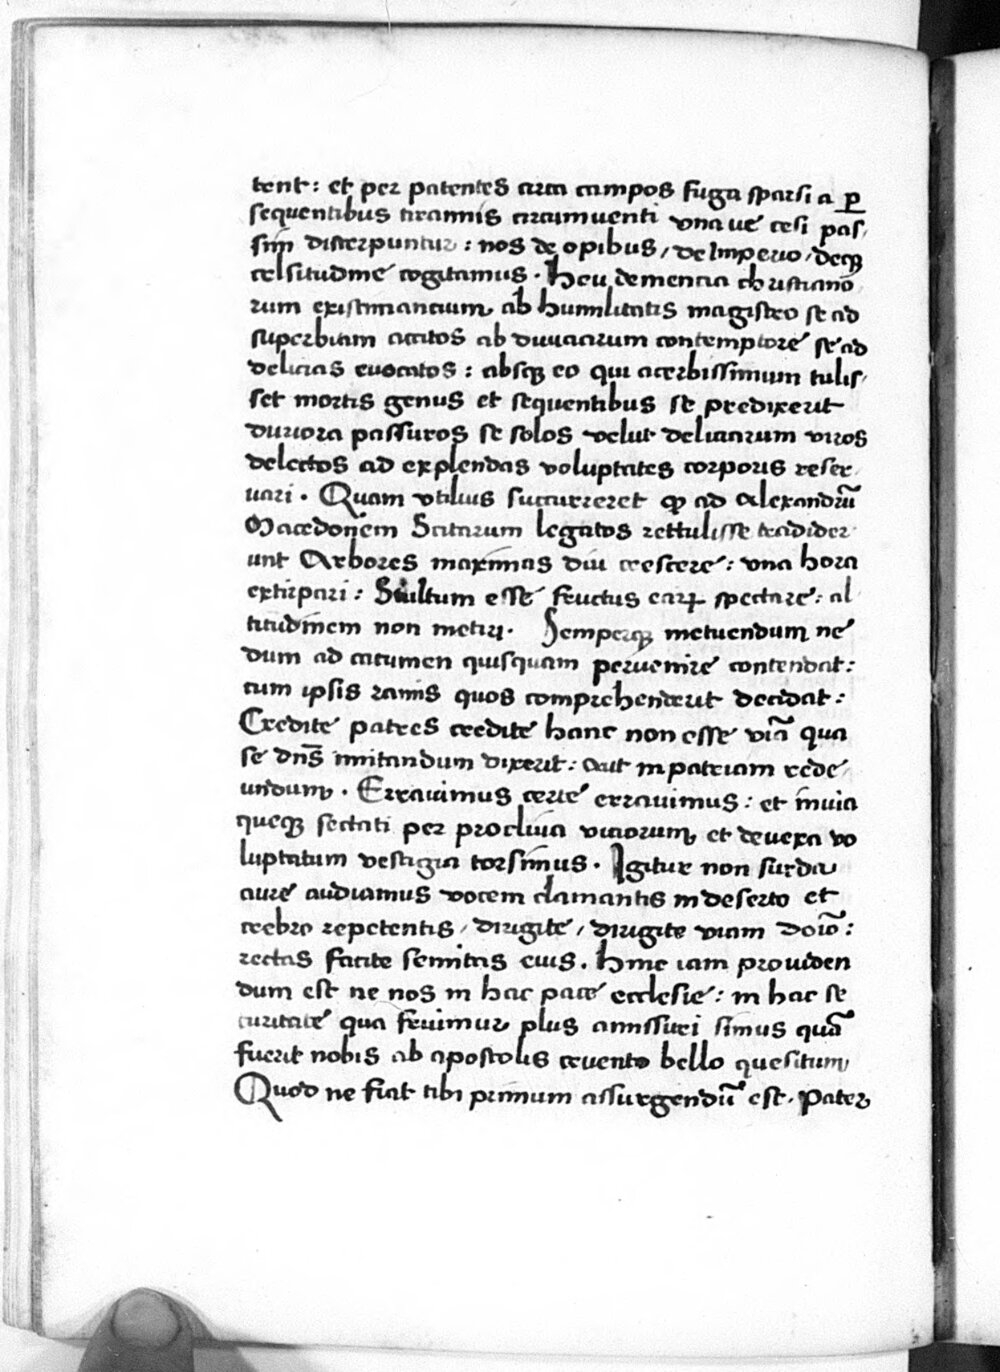 tent: et per patentes circa campos fuga sparsi a p̲
sequentibus tirannis circumuenti vna ue cesi pas,
sim discerpuntur: nos de opibus, de Imperio, deqꝫ
celsitudine cogitamus. Heu dementia christiano
rum existimancium, ab humilitatis magistro se ad
superbiam accitos ab diuiciarum contemptore se ad
delicias euocatos: absqꝫ eo qui acerbissimum tulis,
set mortis genus et sequentibus se predixerit
duriora passuros se solos velut deliciarum viros
delectos ad explendas voluptates corporis reser,
uari. Quam vtilius succurreret ꝙ ad Alexandrū
Macedonem Scitarum legatos rettulisse tradider
unt Arbores maximas diu crescere: vna hora
extirpari: Stultum esse fructus earꝝ spectare: al
titudinem non metiri. Semperqꝫ metuendum ne
dum ad cacumen quisquam peruenire contendat:
cum ipsis ramis quos comprehenderit decidat:
Credite patres credite hanc non esse viā qua
se dn̄s imitandum dixerit: aut in patriam rede,
undum. Errauimus certe errauimus: et inuia
queqꝫ sectati per procliua viciorum, et deuexa vo
luptatum vestigia torsimus. Igitur non surda
aure audiamus vocem clamantis in deserto et
crebro repetentis, dirigite, dirigite viam doīo:
rectas facite semitas eius. Hinc iam prouiden
dum est ne nos in hac pace ecclesie: in hac se
curitate qua fruimur plus amissuri simus quā
fuerit nobis ab apostolis cruento bello quesitum,
Quod ne fiat tibi primum assurgendū est. Pater